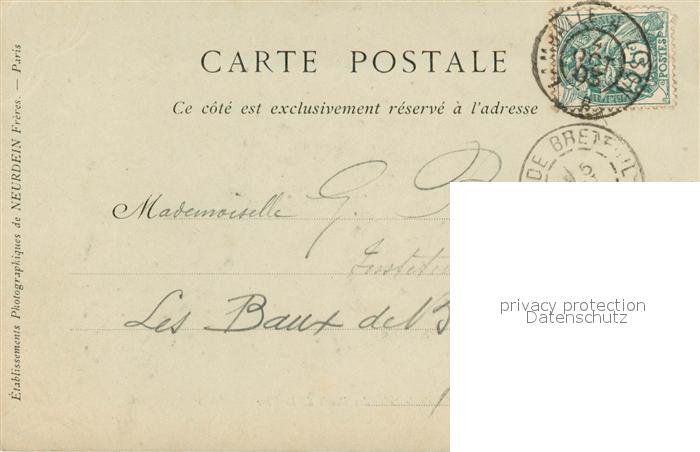 CARTE POSTALE
Ce côté est exclusivement réservé à l'adresse
Mademoiselle G.
Les Baux de B
Établissements Photographiques de NEURDEIN Frères. — Paris
POSTES
DE BRETEUIL
privacy protection
Datenschutz